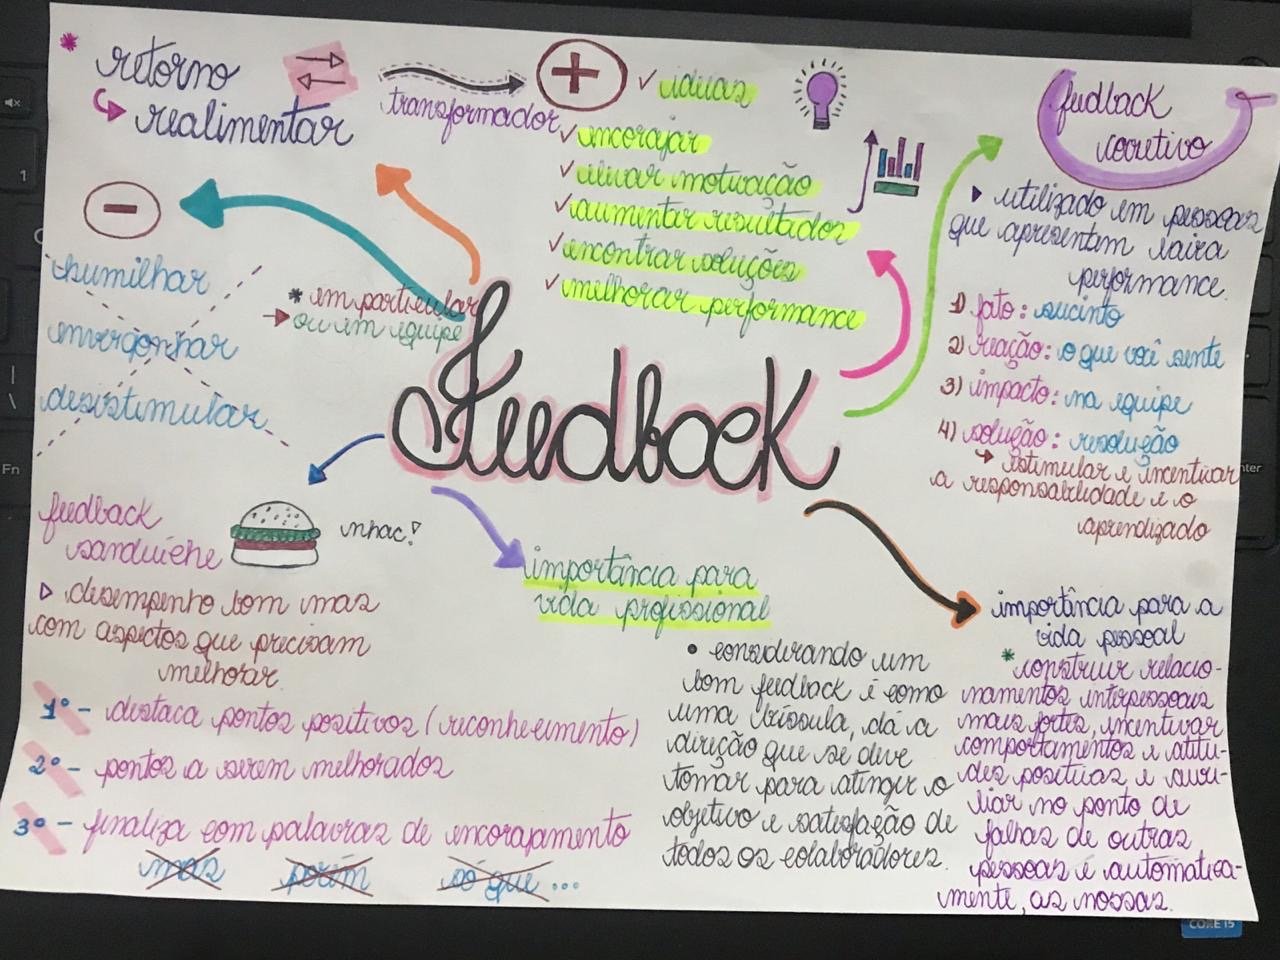 retorno
realimentar
transformador
+
ideias
encorajar
elevar motivação
aumentar resultados
encontrar soluções
melhorar performance
-
humilhar
envergonhar
desestimular
* em particular
ou em equipe
Feedback
feedback
corretivo
utilizado em pessoas
que apresentam baixa
performance.
1) fato: sucinto
2) reação: o que você sente
3) impacto: na equipe
4) solução: resolução
estimular e incentivar
a responsabilidade e o
aprendizado
feedback
sanduíche
nhac!
desempenho bom mas
com aspectos que precisam
melhorar.
1º - destaca pontos positivos (reconhecimento)
2º - pontos a serem melhorados
3º - finaliza com palavras de encorajamento
mas porém só que ...
importância para
vida profissional
• considerando um
bom feedback é como
uma bússula, dá a
direção que se deve
tomar para atingir o
objetivo e satisfação de
todos os colaboradores.
importância para a
vida pessoal
* construir relacio-
namentos interpessoais
mais fortes, incentivar
comportamentos e atitu-
des positivas e auxi-
liar no ponto de
falhas de outras
pessoas e automatica-
mente, as nossas.
1
Fn
CORE i5